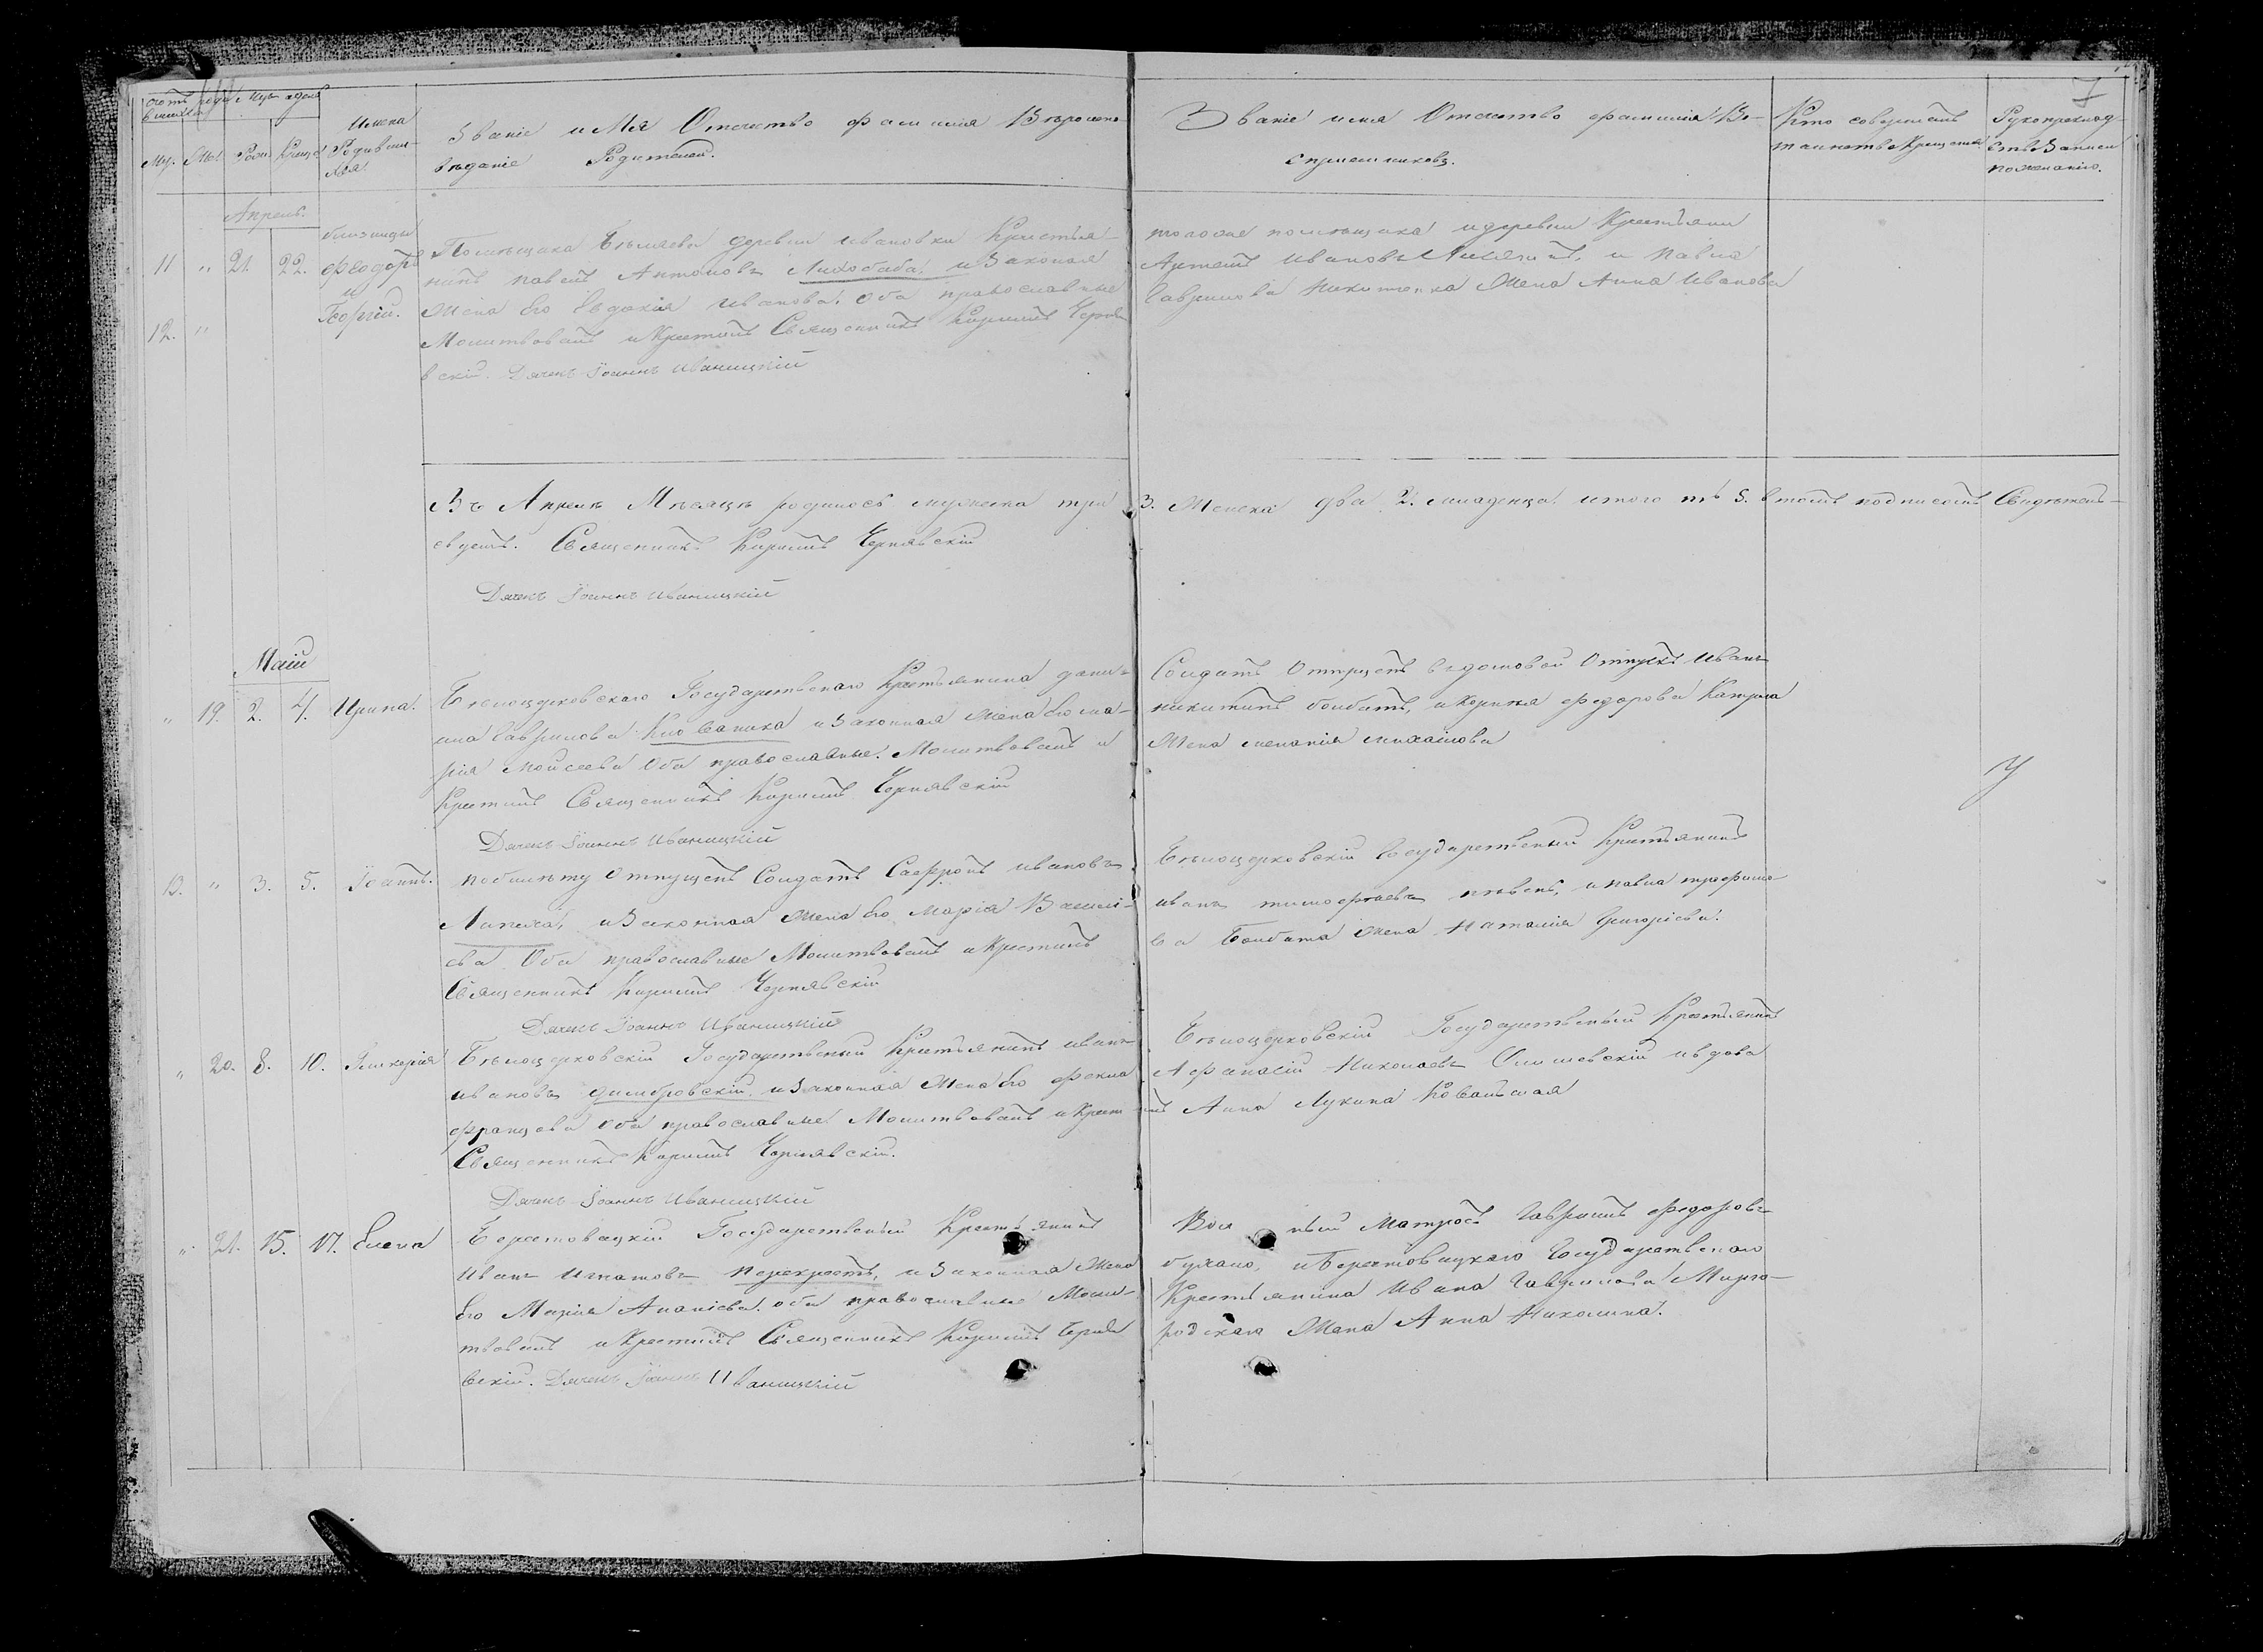 Счетъ роди Мцъ и день
Имена
Родивши
хся.
Му. Же. Рож. Крещ.
Званіе имя Отчество фамилія Вѣроиспо-
вѣданіе Родителей.
Званіе имя Отчество фамилія Во-
спріемниковъ.
Кто совершалъ
таинство Крещенія
Рукоприклад-
ство Записи
по желанію.
7
Апрель.
11 " 21. 22.
12. "
близнецы
Феодоръ
и
Георгій.
Помѣщика Бѣляева деревни Ивановки Крестья-
нинъ Павелъ Антоновъ Лихобаба, и Законная
Жена Его Евдокія Иванова. Оба православные
Молитвовалъ и Крестилъ Священникъ Кириллъ Черня
вскій. Дячекъ Іоаннъ Иваницкій
тогоже помѣщика и деревни Крестьянинъ
Ивановъ и Павла
Гаврилова Никитенка Жена Анна Иванова
Въ Апрелѣ Мѣсяцѣ родилось мужеска три 3. Женска два 2. младенца итого 5. въ томъ подписомъ Свидѣтель-
свуетъ. Священникъ Кириллъ Чернявскій
Дячекъ Іоаннъ Иваницкій
Маій
" 19. 2. 4. Ирина.
Бѣлоцерковскаго Государственаго Крестьянина дани-
ила Гаврилова и Законная Жена Его ма-
рія Моисеева Оба православные. Молитвовалъ и
Крестилъ Священникъ Кириллъ Чернявскій
Дячекъ Іоаннъ Иваницкій
Солдатъ Отпущенъ въ домовой Отпускъ Иванъ
никитинъ болбатъ, и Корнѣя федорова
Жена меланія михайлова
13. " 3. 5. Іоаннъ.
побилѣту Отпущенъ Солдатъ Сафронъ ивановъ
Лапеха, и Законная Жена Его Марія Василі-
ева Оба православные Молитвовалъ и Крестилъ
Священникъ Кириллъ Чернявскій
Дячекъ Іоаннъ Иваницкій
Бѣлоцерковскій Государственый Крестьянинъ
иванъ тимофеевъ пѣвень, и павла трофимо-
ва Болбата Жена Наталія Григоріева.
" 20. 8. 10. Гликерія
Бѣлоцерковскій Государственый Крестьянинъ иванъ
ивановъ димбровскій, и Законная Жена Его фекла
францова Оба православные Молитвовалъ и Крестилъ
Священникъ Кириллъ Чернявскій.
Дячекъ Іоаннъ Иваницкій
Бѣлоцерковскій Государственый Крестьянинъ
Афанасій Николаевъ Олишевскій и вдова
Анна Лукина Ковалъская
" 21. 15. 17. Елена
Берестовацкій Государственый Крестьянинъ
Иванъ Игнатовъ перехрестъ, и Законная Жена
Его Марія Ананіева. оба православные Моли-
твовалъ и Крестилъ Священникъ Кириллъ Черня
вскій. Дячекъ Іоаннъ Иваницкій
Вол ный Матросъ Гаврилъ федоровъ
и Берестовацкаго Государственаго
Крестьянина Ивана Гаврилова Мирго-
родскаго Жена Анна Николина.